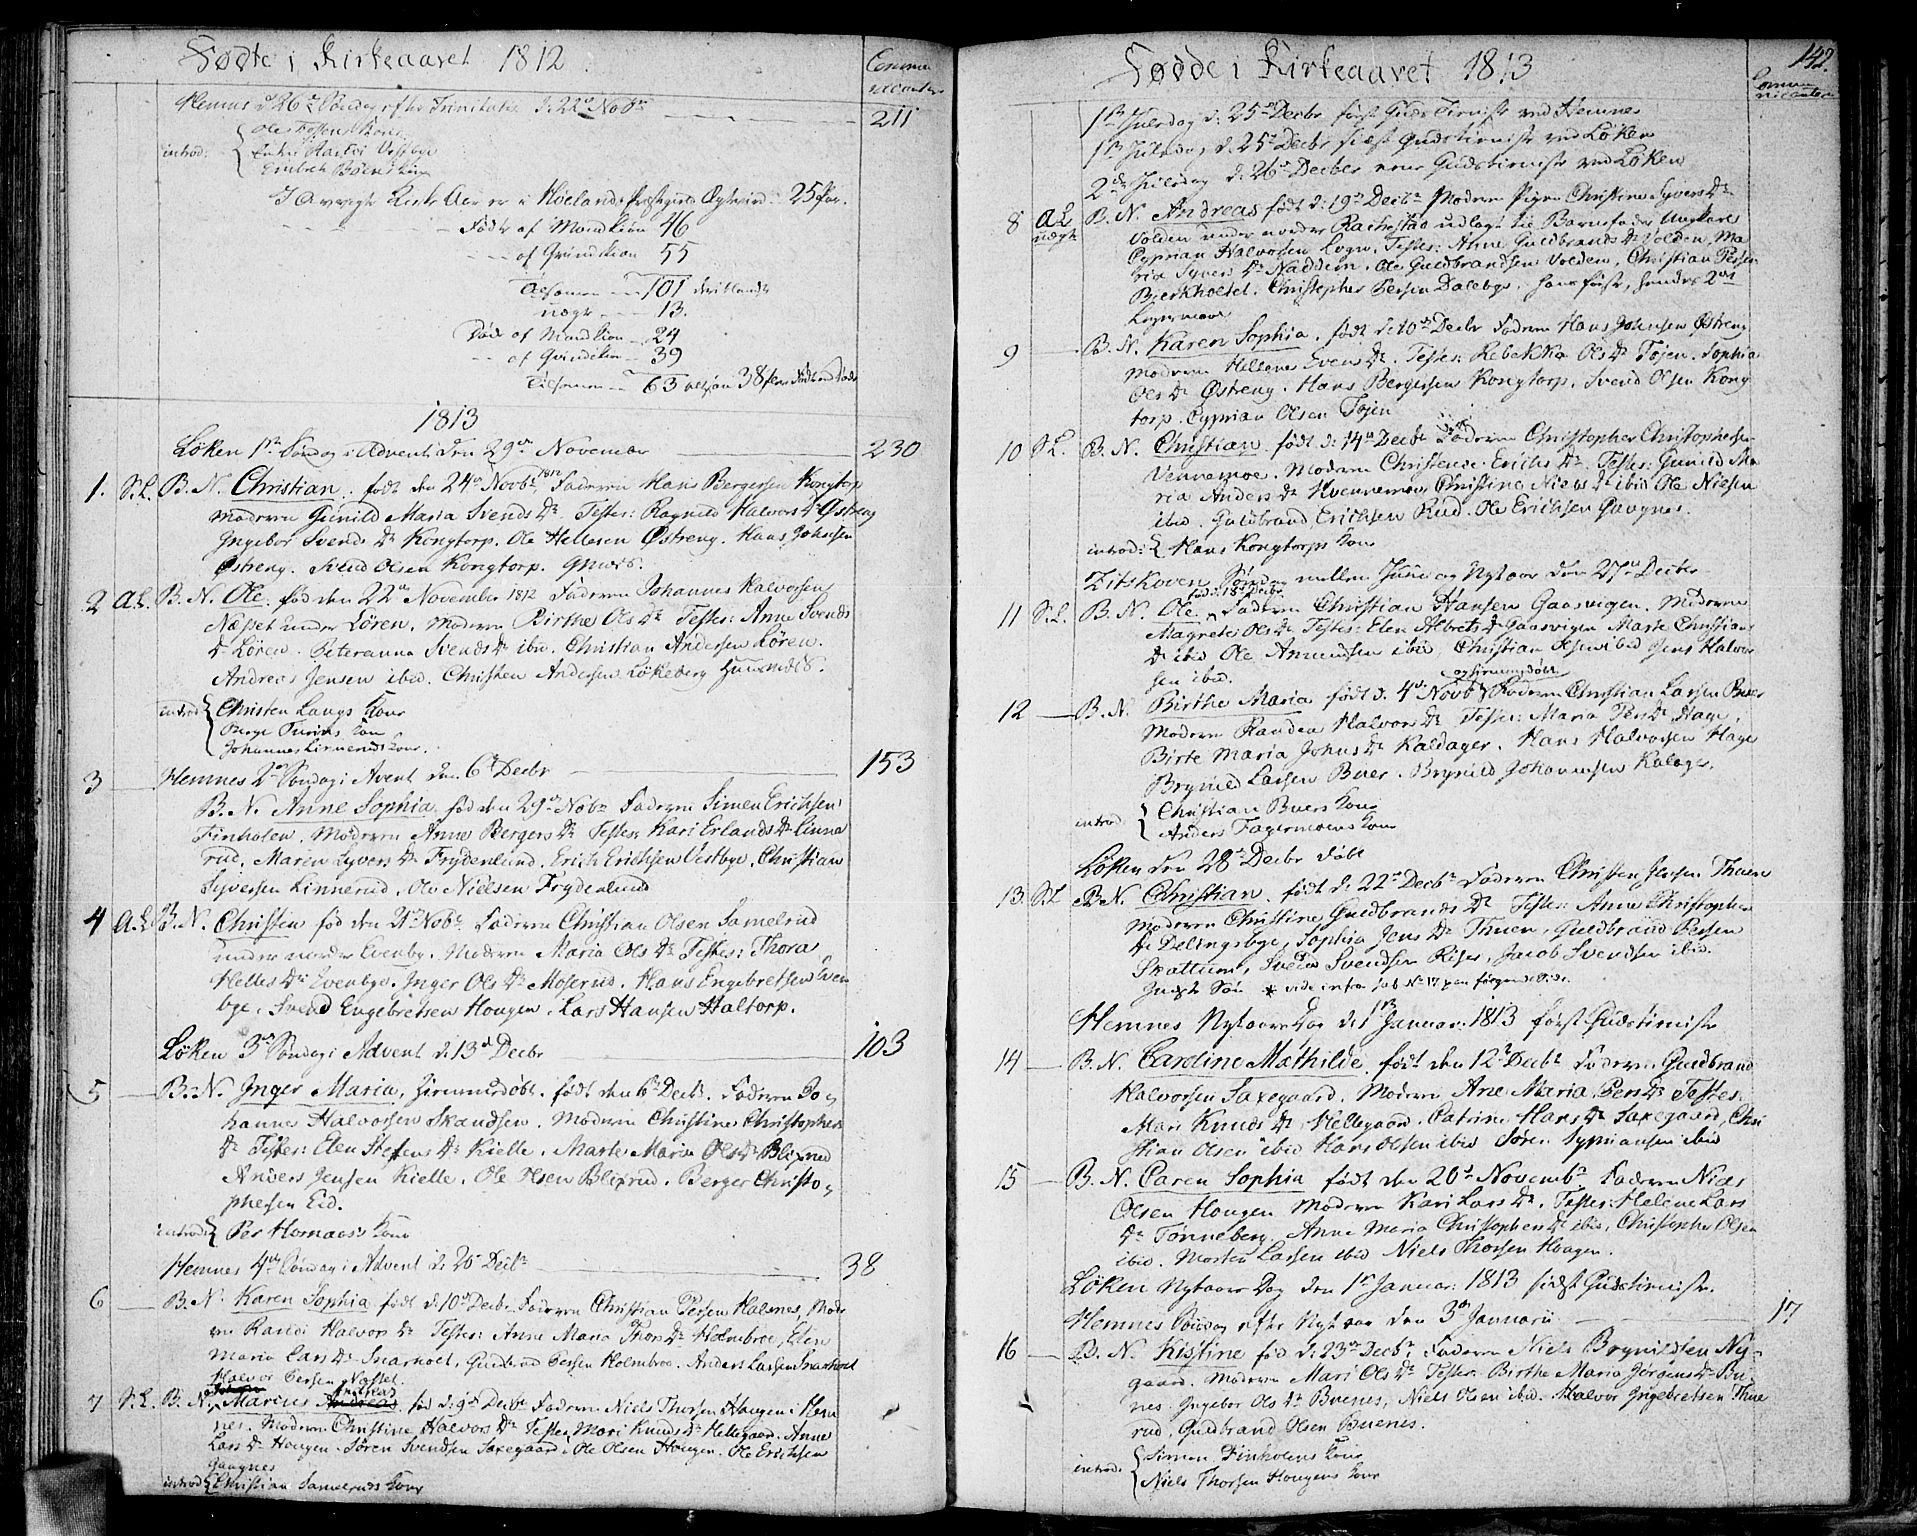 Fødte i Kirkeaaret 1812
Hemnes d. 26de Søndag efter Trinitatis d. 22de Novbr 211
Ole Fossers Kone
introd:
I Høelands Præstegield Egtevied 25 Par.
Født af Mandkiøn 46
of Qvindekiøn 55
Tilsamen 101
uægte 13.
Død af Mandkiøn 24
of Qvindekiøn 39
Tilsamen 63 altsaa 38 flere Født end Død
1813
Løken 1ste Søndag i Advent den 29de November 230
1. S.L. B. N. Christian. født den 24de Novbr 1812 Faderen Hans Bergersen Kongtorp
Moderen Gunild Maria Svends Dr. Testes: Ragnild Halvors Dr Østreng
Ingebor Svends Dr Kongtorp. Ole Hellesen Østreng. Hans Johnsen
Østreng. Svend Olsen Kongtorp.
2 A.L. B. N. Ole. fød den 22de November 1812 Faderen Johannes Halvorsen
Næsset under Løren. Moderen Birthe Ols Dr Testes: Anne Svends
Dr Løren. Peteranna Svends Dr ibid. Christian Andersen Løren.
Andreas Jensen ibid. Christen Andersen Løkeberg
introd Christen Langs Kone
Johannes Linneruds Kone.
3 Hemnes 2den Søndag i Advent den 6te Decbr 153
B. N. Anne Sophia. fød den 29de Novbr Faderen Simen Erichsen
Finholen. Moderen Anne Bergers Dr Testes: Kari Erlands Dr Linne
rud. Maren Syvers Dr Frydenlund. Erich Erichsen Vestbye. Christian
Syversen Linnerud. Ole Nielsen Frydenlund
4 A.L. B. N. Christen fød den 21de Novbr Faderen Christian Olsen Samelrud
under nordre Evenby. Moderen Maria Ols Dr Testes: Thora
Helles Dr Evenbye. Inger Ols Dr Moserud. Hans Engebretsen Even
bye. Svend Engebretsen Hougen. Lars Hansen Haltorp.
Løken 3die Søndag i Advent d. 13de Decbr 103
5 B. N. Inger Maria, hiemmedøbt. født den 6te Decbr. Faderen Jo-
hannes Halvorsen Skandsen. Moderen Christine Christophers
Dr Testes: Elen Stefens Dr Kielle. Marte Maria Ols Dr Blixrud
Anders Jensen Kielle. Ole Olsen Blixrud. Berger Christo-
phersen Eid.
introd: Per Homaas's Kone
Hemnes 4de Søndag i Advent d. 20de Decbr 38
6 B. N. Karen Sophia født d. 10de Decbr Faderen Christian Persen Halsnes. Mode
ren Randi Halvors Dr Testes: Anne Maria Thors Dr Holmbroe, Elen
Maria Lars Dr Snarholt, Gudbrand Persen Holmbroe. Anders Larsen Snarholt
Halvor Persen Næsset.
7 S.L. B. N. Marius Andreas fød d. 9de Decbr Faderen Niels Thorsen Hougen i Hem
nes. Moderen Christine Halvors Dr Testes Mari Knuds Dr Hellegaard. Anne
Lars Dr Hougen. Søren Svendsen Saxegaard. Ole Olsen Hougen. Ole Erichsen
Gaugnes
introd Christian Samelruds Kone
Fødde i Kirkeaaret 1813 142.
1ste Juledag d. 25de Decbr først Gudstieniste ved Hemnes
1ste Juledag d. 25de Decbr sidst Gudstieniste ved Løken
2den Juledag d. 26de Decber Gudstieniste ved Løken
8 A.L. uægte B. N. Andreas født d. 19de Decbr Moderen Pigen Christine Syvers Dr
Volden under nordre Rachestad udlagt til Barnefader Ungkarl
Cyprian Halvorsen Logn. Testes: Anne Guldbrands Dr Volden, Ma
ria Syvers Dr Naddem. Ole Guldbrandsen Volden, Christian Persen
Bierkholtet. Christopher Persen Dalebye. hans første, hendes 2det
Leyermaal
9 B. N. Karen Sophia. født d. 10de Decbr Faderen Hans Johnsen Østreng
Moderen Hellene Svens Dr. Testes: Rebekka Ols Dr Tøien. Sophia
Ols Dr Østreng. Hans Bergersen Kongtorp. Svend Olsen Kong
torp. Cyprian Olsen Tøien
10 S.L. B. N. Christian. født d. 14de Decbr Faderen Christopher Christophersen
Vennemoe. Moderen Christense Erichs Dr. Testes: Gunild Ma
ria Anders Dr Hvennemoe, Christine Niels Dr ibid Ole Nielsen
ibid. Guldbrand Erichsen Rud. Ole Erichsen Gaugnes.
introd: Hans Kongtorps Kone
Zitskoven Søndag mellem Juul og Nytaar den 27de Decbr
11 S.L. B. N. Ole, fød d. 18de Decbr. Faderen Christian Hansen Gaasvigen. Moderen
Magrete Ols Dr Testes: Elen Albrets Dr Gaasvigen Marte Christians
Dr ibid Ole Amundsen ibid Christian Olsen ibid Jens Halvor
sen ibid.
12 B. N. Birthe Maria født d. 4de Novbr og hiemmedøbt Faderen Christian Larsen Buer
Moderen Randea Halvors Dr Testes: Maria Pers Dr Hage,
Birte Maria Johns Dr Kaldager. Hans Halvorsen Hage
Brynild Larsen Buer. Brynild Johannesen Kalager.
introd: Christian Buers Kone
Anders Fagermoens Kone
Løken den 28de Decbr døbt
13. S.L. B. N. Christian. født d. 22de Decbr Faderen Christen Jensen Thuen
Moderen Christine Guldbrands Dr Testes: Anne Christophers
Dr Delingsbye, Sophia Jens Dr Thuen, Guldbrand Persen
Skattum, Svend Svendsen Riser, Jacob Svendsen ibid.
* vide infra sub No 17 paa følgende Side.
Hemnes Nytaarsdag d. 1ste Januar. 1813 først Gudstieniste
14 B. N. Caroline Mathilde, født den 12te Decbr Faderen Guldbrand
Halvorsen Saxegaard. Moderen Ane Maria Pers Dr Testes:
Mari Knuds Dr Hellegaard. Catrine Hans Dr Saxegaard, Chri
stian Olsen ibid Hans Olsen ibid Søren Syprianssen ibid
15 B. N. Caren Sophia født den 20de Novembr Faderen Niels
Olsen Hougen Moderen Kari Lars Dr. Testes: Helene Lars
Dr Tønneberg. Anne Maria Christophers Dr ibid, Christopher Olsen
ibid. Morten Larsen ibid Niels Thorsen Hougen.
Løken Nytaars Dag den 1ste Januar. 1813 sidst Gudstieniste.
Hemnes Søndag efter Nytaar den 3die Januarii 17
16 B. N. Kistine fød d. 23de Decbr. Faderen Niels Brynildsen Ny-
gaard. Moderen Mari Ols Dr Testes: Birthe Maria Jørgens Dr Bu
nes. Ingebor Ols Dr Buenes, Niels Olsen ibid. Halvor Ingebretsen Thue
rud, Guldbrand Olsen Buenes.
introd: Simen Finholens Kone
Niels Thorsen Hougens Kone